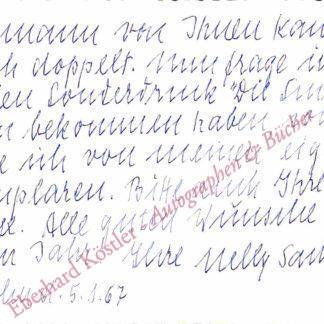 mann von Ihnen kam
h doppelt. Nun frage i
en Sonderdruck "Die Su
n bekommen haben kan
e ich von meinen eig
mplaren. Bitte auch Ihre
Alle guten Wünsche
n Jahr Ihre Nelly Sa
5.1.67
Eberhard Köstler - Autographen & Bücher